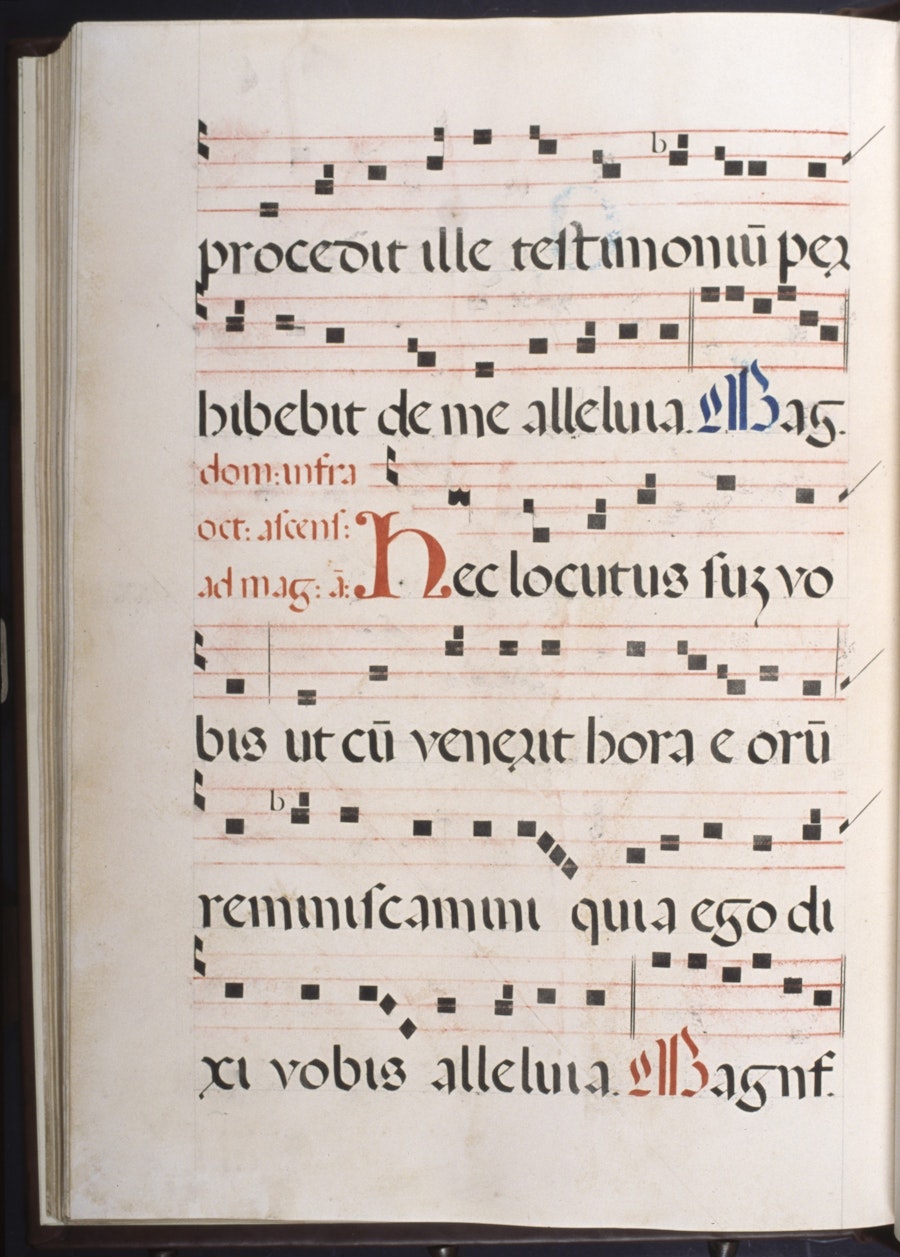 procedit ille testimoniū per
hibebit de me alleluia. Mag.
dom: infra
oct: ascens:
ad mag: ā: Hec locutus suꝫ vo
bis ut cū venerit hora eorū
reminiscamini quia ego di
xi vobis alleluia. Magnf.